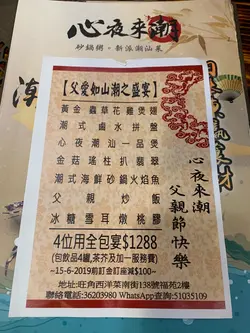 心夜來潮
砂鍋粥。新派潮汕菜
【父愛如山潮之盛宴】
黃金蟲草花雞煲翅
潮式鹵水拼盤
心夜潮汕一品煲
金菇瑤柱扒翡翠
潮式海鮮砂鍋火焰魚
父親炒飯
冰糖雪耳燉桃膠
4位用全包宴$1288
(包飲品4罐,茶芥及加一服務費)
~15-6-2019前訂金訂座減$100~
地址:旺角西洋菜南街138號福苑2樓
聯絡電話:36203980 WhatsApp查詢:51035109
心夜來潮
父親節快樂
潮